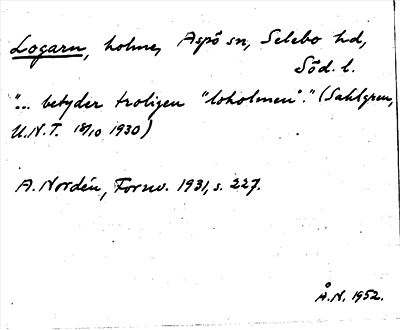 Logarn, holme, Aspö sn, Selebo hd,
Söd. l.
"... betyder troligen "loholmen"." (Sahlgren,
U.N.T. 18/10 1930)
A. Nordén, Fornv. 1931, s. 227.
Å.N. 1952.